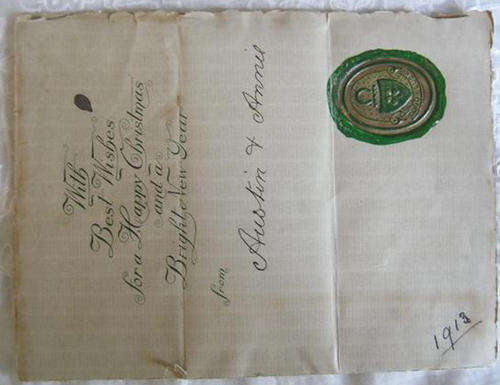 With
Best Wishes
for a Happy Christmas
and a
Bright New Year
from
Austin & Annie
1913